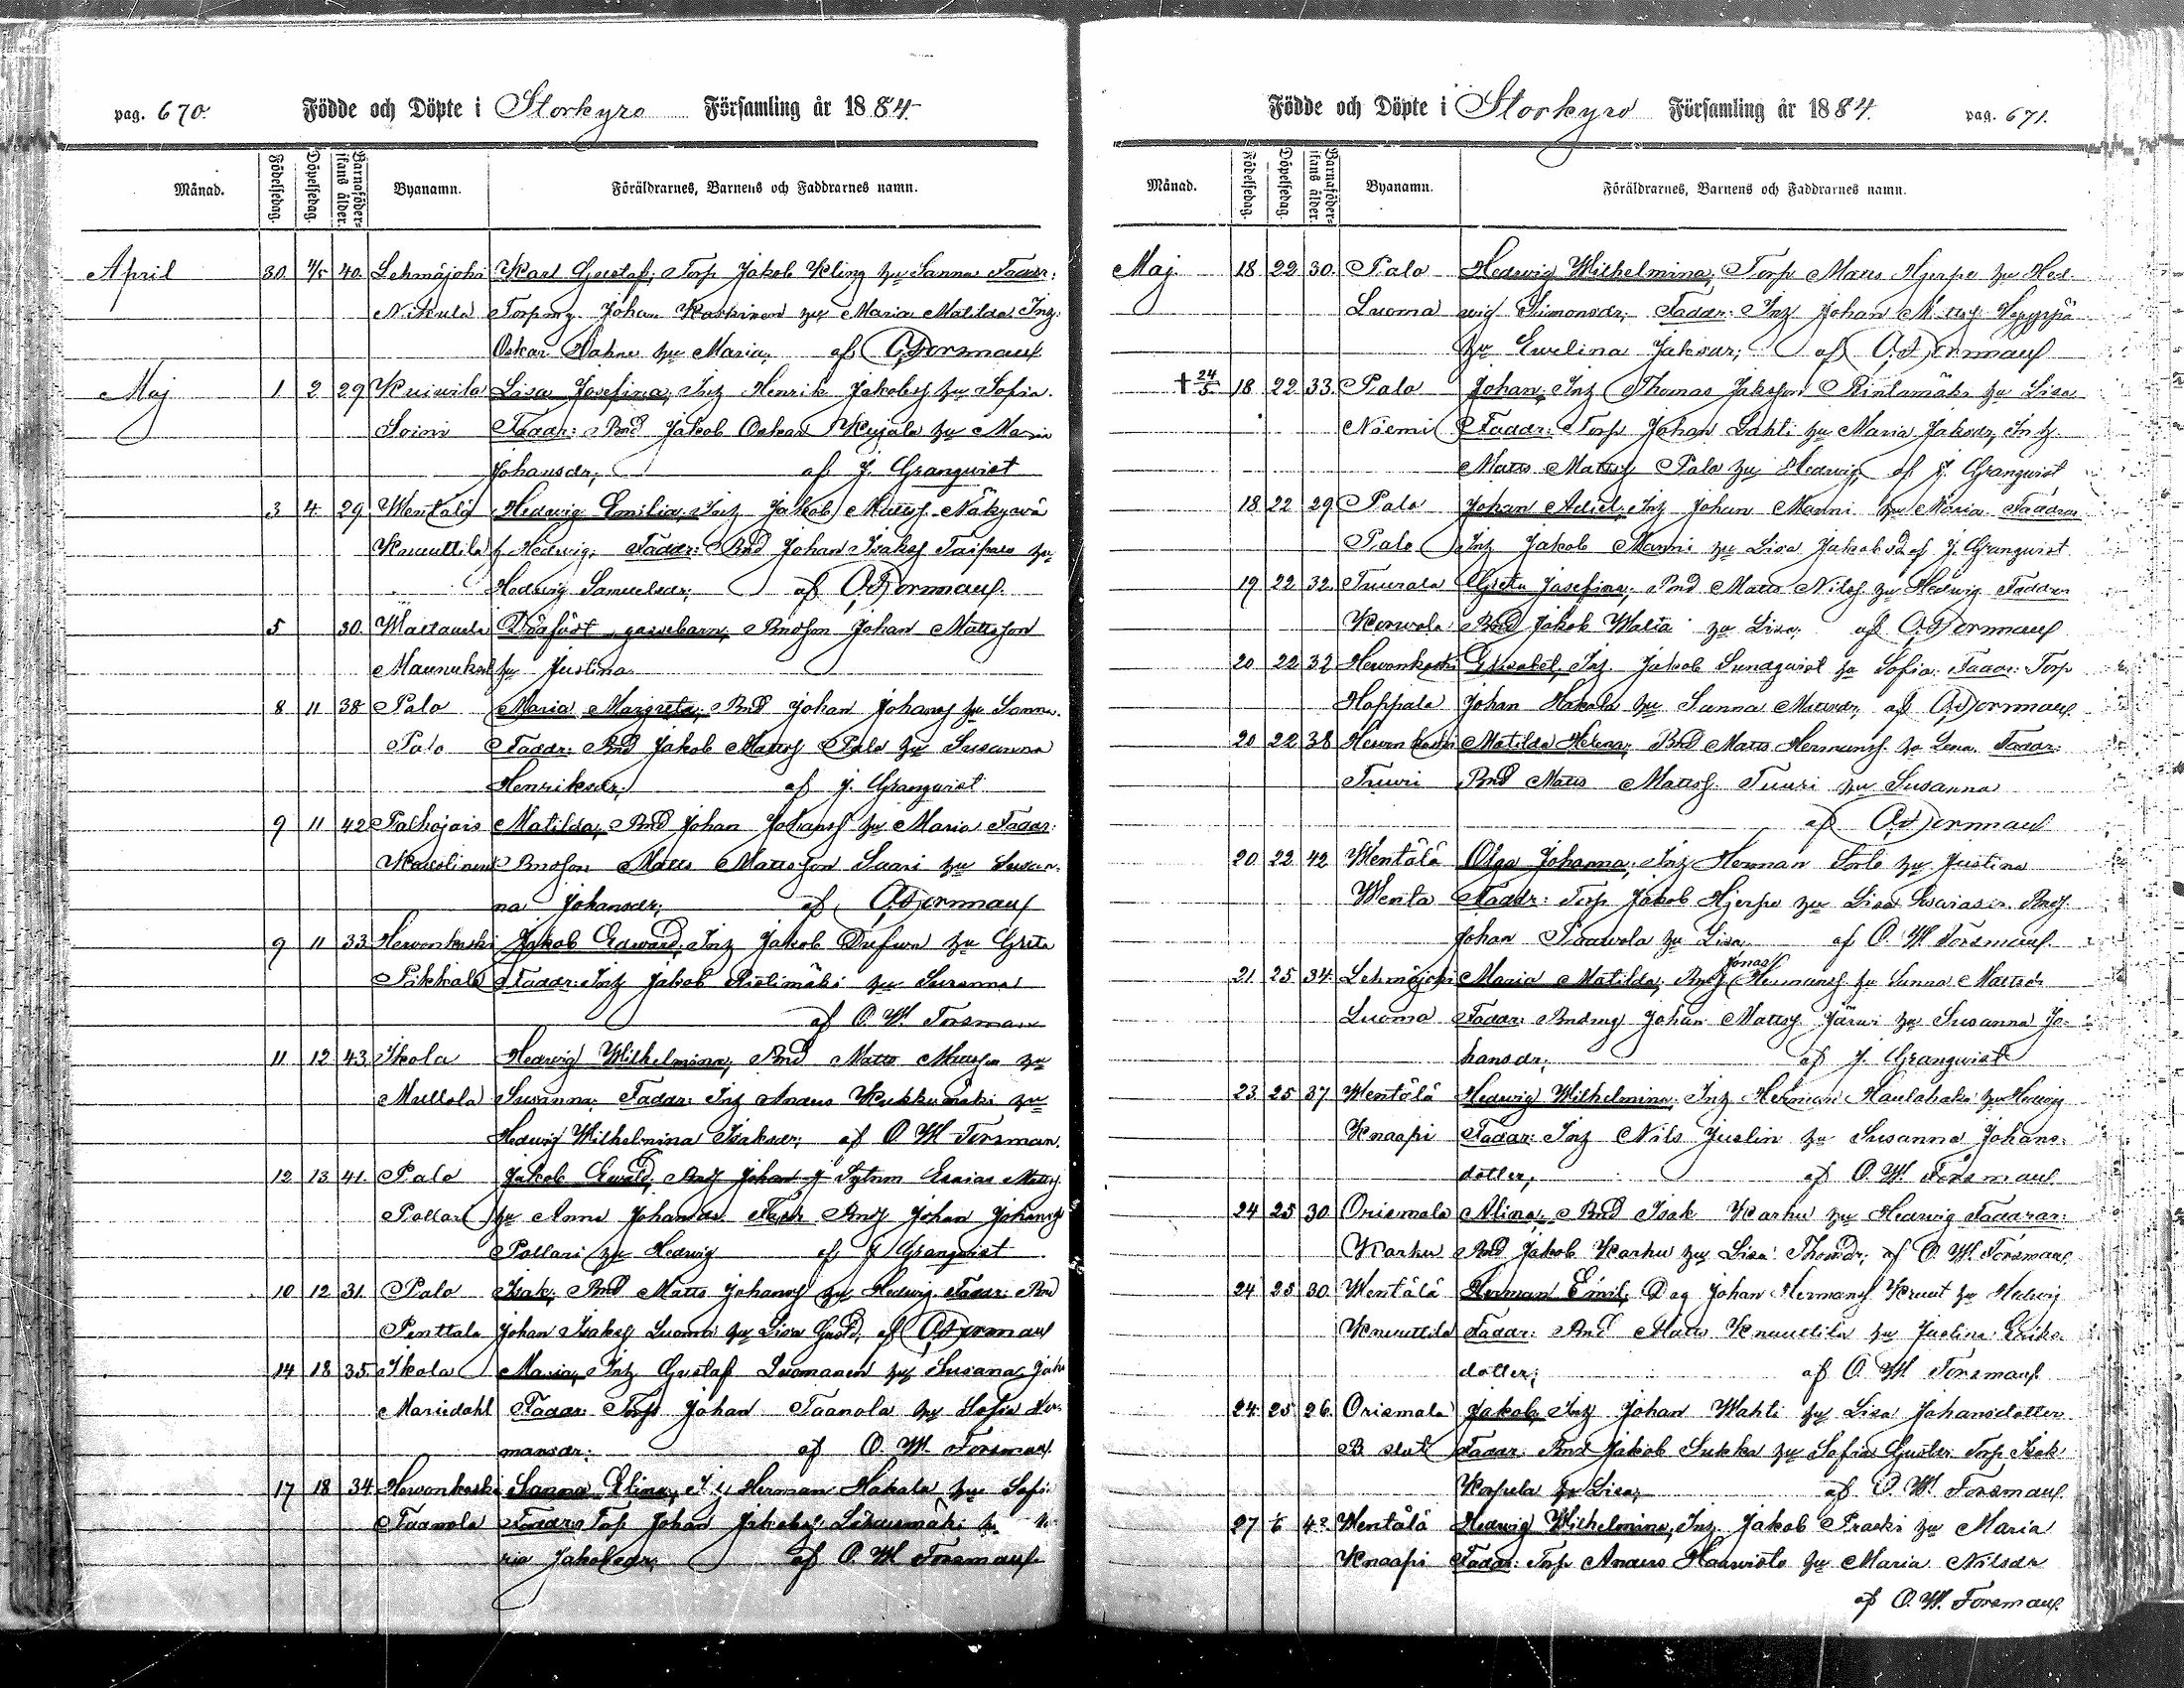 pag. 670. Födde och Döpte i Storkyro Församling år 1884.
Månad. Födelsedag. Döpelsedag. Barnaföderskans ålder. Byanamn. Föräldrarnes, Barnens och Faddrarnes namn.
April 30. 4/5 40. Lehmäjoki Karl Gustaf; Torp Jakob Kling hu Sanna Faddr:
Nikula Torpmg. Johan Koskinen hu Maria Matilda Inh:
Oskar Hahne hu Maria; af O. Forsmans
Maj 1 2 29 Kuiwila Lisa Josefina; Inh Henrik Jakobss hu Sofia.
Soini Faddr: Bnd Jakob Oskar Kujala hu Maria
Johansdr; af J. Granqvist
3 4 29 Wentälä Hedwig Emilia; Inh Jakob Mattss. Näkywä
Knuuttila h Hedwig; Faddr: Bnd Johan Isakss Taipale hu
Hedwig Samuelsdr; af O. Forsmans
5 30. Waltaala Dödfödt gossebarn; Bndson Johan Mattsson
Maunuksel hu Justina
8 11 38 Palo Maria Margreta; Bnd Johan Johanss hu Sanna.
Palo Faddr: Bnd Jakob Mattss Palo hu Susanna
Henriksdr; af J. Granqvist
9 11 42 Palhojais Matilda; Bnd Johan Johanss hu Maria Faddr:
Bndson Matts Mattsson Saari hu Susan-
na Johansdr; af O. Forsmans
9 11 33 Hevonkoski Jakob Edward; Inh Jakob Dufwa hu Greta
Pikkala Faddr: Inh Jakob Ristimäki hu Susanna
af O. W. Forsman
11 12 43. Ikola Hedwig Wilhelmina; Bnd Matts Mattsson hu
Mullola Susanna; Faddr: Inh Anders Kukkumäki hu
Hedwig Wilhelmina Isaksdr; af O. W. Forsman.
12 13 41. Palo Jakob Ewald; Bnd Johan J Sytnm Esaias Mattss
Pollari hu Anna Johansdr. Faddr Bnd Johan Johanss
Pollari hu Hedwig af J Granqvist
10 12 31. Palo Isak; Bnd Matts Johanss hu Hedwig. Faddr: Bnd
Penttala Johan Isakss Luoma hu Lisa Gustd; af O. Forsmans
14 18 35. Ikola Maria; Inh Gustaf Luomanen hu Susana Joh
Mariedahl Faddr: Torp Johan Taanola hu Sofia Her-
mansdr: af O. W. Forsmans
17 18 34 Hevonkoski Sanna Elina; Inh Herman Hakala hu Sofia
Taanola Faddr: Torp Johan Jakobss Liikasmäki hu Ma-
ria Jakobsdr; af O. W Forsmans
Födde och Döpte i Storkyro Församling år 1884. pag. 671.
Månad. Födelsedag. Döpelsedag. Barnaföderskans ålder. Byanamn. Föräldrarnes, Barnens och Faddrarnes namn.
Maj. 18 22 30. Palo Hedwig Wilhelmina; Torp Matts Hjerpe hu Hed-
Luoma wig Simonsdr; Faddr: Inh Johan Mattss
hu Ewelina Jaksdr; af O. Forsmans
† 24/5 18 22 33. Palo Johan; Inh Thomas Jaksson Rintamäki hu Lisa
Niemi Faddr: Torp Johan Lahti hu Maria Jaksdr, Inh.
Matts Mattss Palo hu Hedwig, af J. Granqvist
18 22 29 Palo Johan Adiel; Inh Johan Manni hu Maria Faddrar
Palo Inh Jakob Manni hu Lisa Jakobsd af J. Granqvist
19 22 32. Tuurala Greta Josefina; Bnd Matts Nilss hu Hedwig Faddrar
Kerwola Bnd Jakob Walta hu Lisa; af O. Forsmans
20 22 32 Hevonkoski Elisabet. Inh. Jakob Sundqvist hu Sofia. Faddr: Torp
Hoppala Johan Hakala hu Sanna Mattsdr; af O. Forsmans
20 22 38 Hevonkoski Matilda Helena; Bnd Matts Hermanss. hu Lena. Faddr:
Tuuri Bnd Matts Mattss Tuuri hu Susanna
af O. Forsmans
20. 22 42 Wentälä Olga Johanna; Inh Herman Sorb hu Justina
Wenta Faddr: Torp Jakob Hjerpe hu Lisa Esaiasdr. Bnd
Johan Paawola hu Lisa af O. W. Forsmans
21. 25 34. Lehmäjoki Maria Matilda; Bnd Jonas Hermanss hu Sanna Mattsdr
Luoma Faddr: Bndmg Johan Mattss Järwi hu Susanna Jo-
hansdr; af J. Granqvist
23. 25 37 Wentälä Hedwig Wilhelmina; Inh Herman Haulahaka hu Hedwig
Knaapi Faddr: Inh Nils Juslin hu Susanna Johans-
dotter; af O. W. Forsmans
24 25 30 Orismala Alina; Bnd Isak Karhu hu Hedwig Faddrar:
Karhu Bnd Jakob Karhu hu Lisa Thomdr; af O. W. Forsmans
24 25 30. Wentälä Herman Emil; Drg Johan Hermanss Kruut hu Hedvig
Knuuttila Faddr: Bnd Matts Knuuttila hu Justina Eriks-
dotter; af O. W Forsmans
24. 25 26. Orismala Jakob; Inh Johan Wahti hu Lisa Johansdotter
Faddr. Bnd Jakob Sukka hu Sofia Gustdr. Torp Isak
Kaspela hu Lisa; af O. W. Forsmans
27 42 Wentälä Hedwig Wilhelmina; Inh. Jakob Praski hu Maria
Knaapi Faddr: Torp Anders Haawisto hu Maria Nilsdr
af O. W. Forsmans